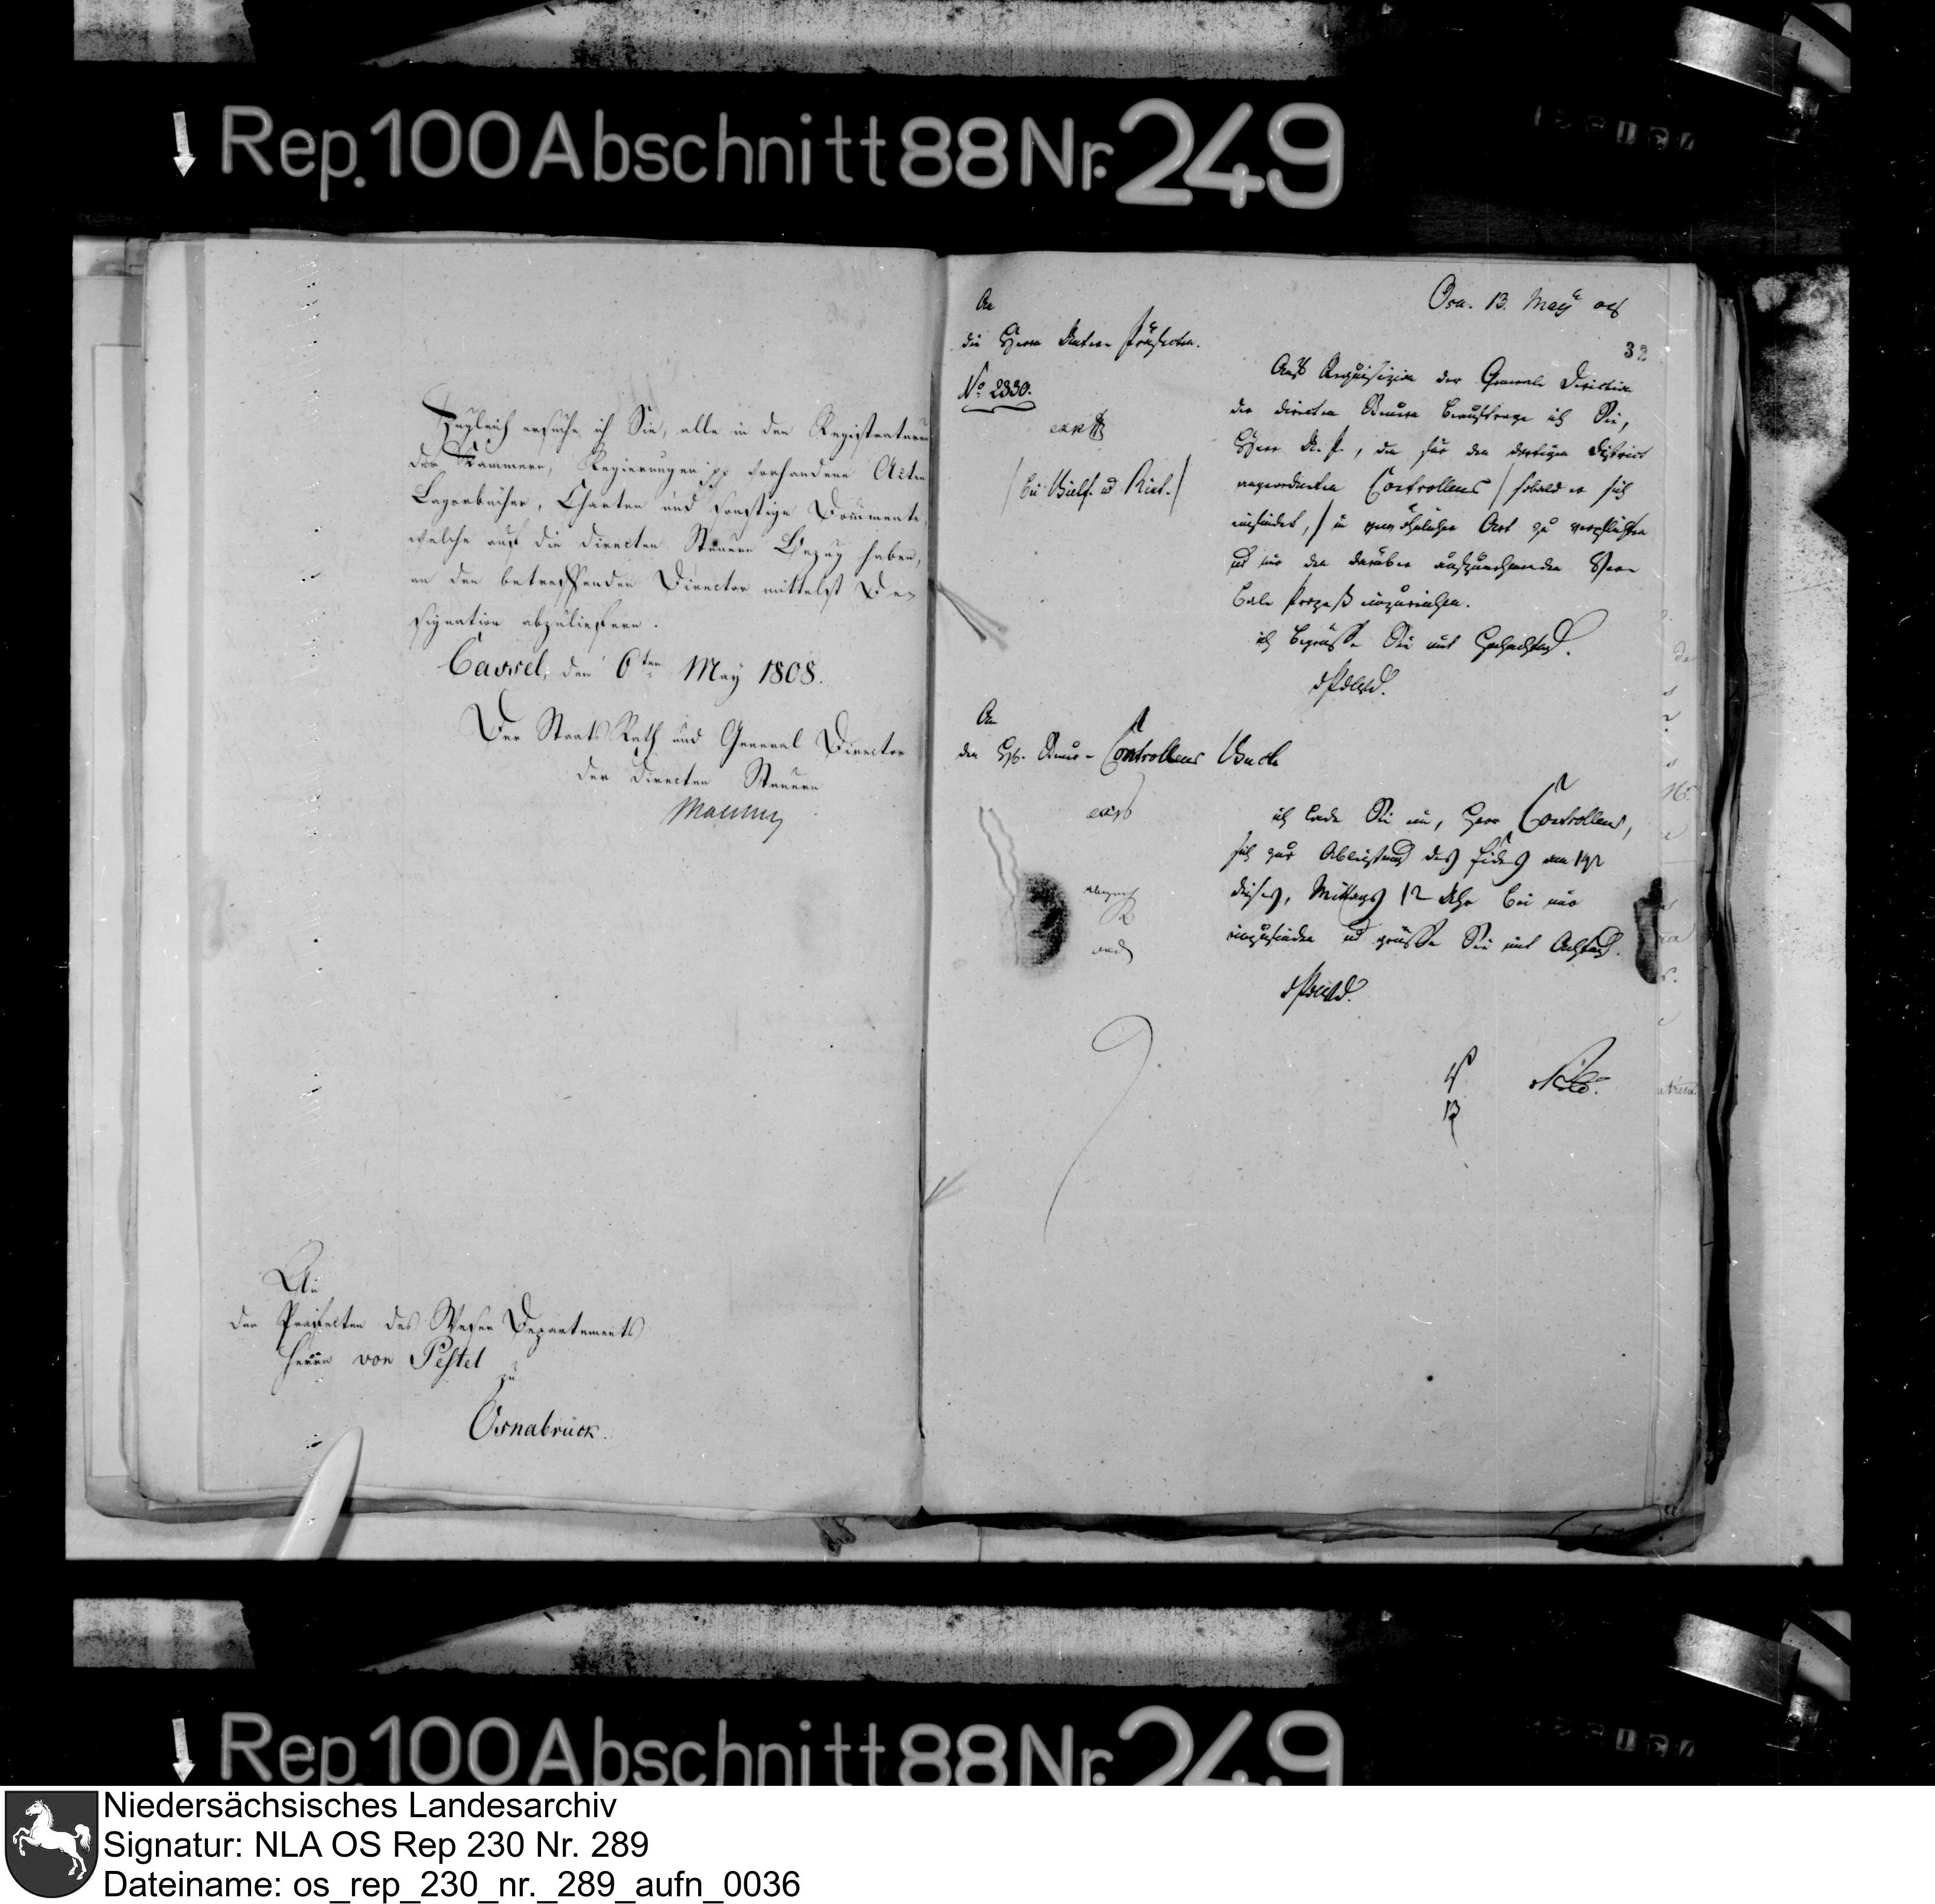 Rep. 100 Abschnitt 88 Nr. 249
Zugleich ersuche ich Sie, alle in den Registraturen
der Kammern, Regierungen pp vorhandene Acten
Lagerbücher, Charten und sonstige Documente,
welche auf die directen Steuern Bezug haben,
an den betreffenden Director mittelst De-
signation abzuliefern.
Cassel, den 6ten May 1808.
Der Staats Rath und General Director
der directen Steuern
An
den Präfecten des Weser Departements
Herrn von Pestel
zu
Osnabrück.
Osn. 13. May 08
32
An
die Herrn Unter-Präfecten.
No 2330.
(bei Bielf. u Rint.)
Auf Requisizion der General Direction
der directen Steuern beauftrage ich Sie,
Herr U. P., den für den dortigen District
angeordneten Controlleur (sobald er sich
einfindet,) in gewöhnlicher Art zu verpflichten
und mir den darüber aufzunehmenden Ver-
bal Prozeß einzureichen.
ich begrüße Sie mit Hochachtung.
An
den H. Steuer-Controlleur Buch
ich lade Sie ein, Herr Controlleur,
sich zur Ableistung des Eides am
dieses, Mittags 12 Uhr bei mir
einzufinden und grüße Sie mit Achtung.
Rep. 100 Abschnitt 88 Nr. 249
Niedersächsisches Landesarchiv
Signatur: NLA OS Rep 230 Nr. 289
Dateiname: os_rep_230_nr._289_aufn_0036